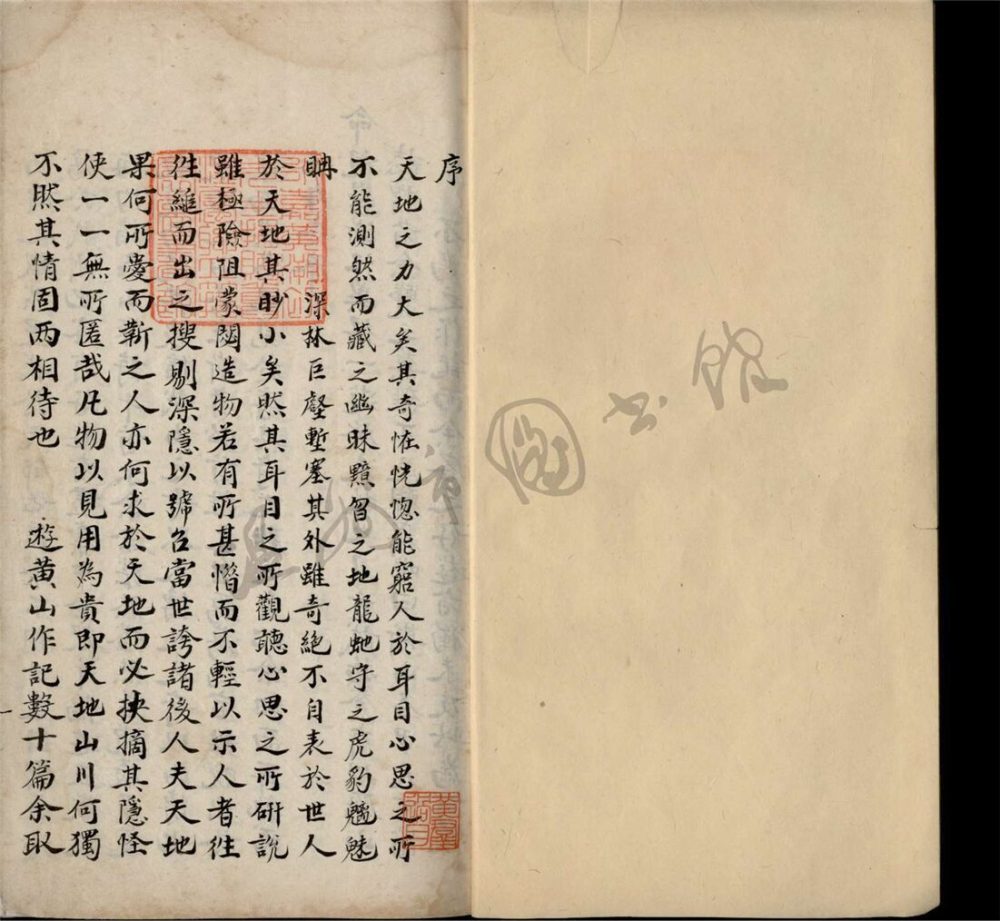 序
天地之力大矣其奇恠恍惚能窮人於耳目心思之所
不能測然而藏之幽昧黯曶之地龍虵守之虎豹魑魅
睭深林巨壑塹塞其外雖奇絶不自表於世人
於天地其眇小矣然其耳目之所觀聽心思之所研說
雖極險阻蒙闊造物若有所甚惜而不輕以示人者徃
徃縋而出之搜剔深隱以號召當世誇諸後人夫天地
果何所愛而靳之人亦何求於天地而必抉摘其隱怪
使一一無所匿哉凡物以見用為貴即天地山川何獨
不然其情固兩相待也 遊黃山作記數十篇余取
圖書館